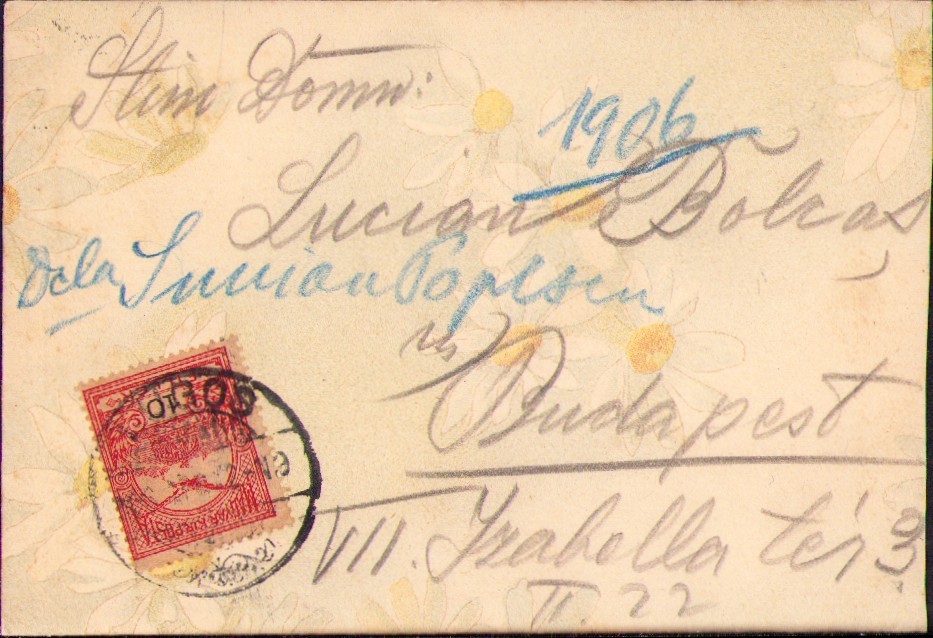 Stim Domn:
1906
Lucian Bolcas
Dela Lucian Popescu
Budapest
VII. Izabella tér 3
II. 22
MAGYAR KIR POSTA
10